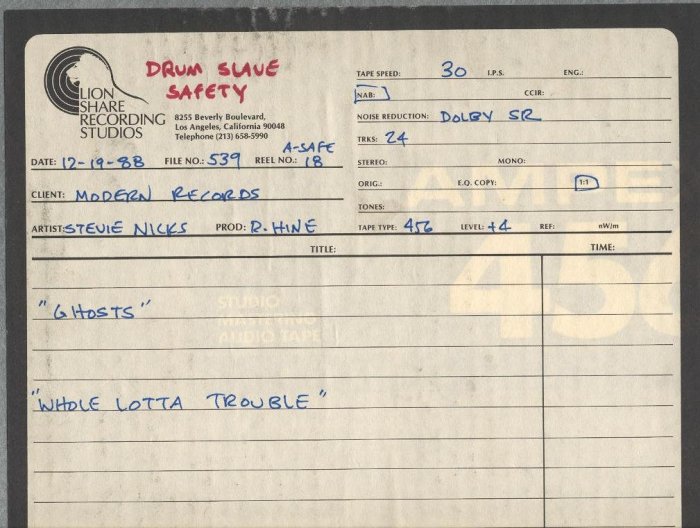 DRUM SLAVE
SAFETY
LION
SHARE
RECORDING
STUDIOS
8255 Beverly Boulevard,
Los Angeles, California 90048
Telephone (213) 658-5990
DATE: 12-19-88 FILE NO.: 539 REEL NO.: A-SAFE 18
CLIENT: MODERN RECORDS
ARTIST: STEVIE NICKS PROD: R. HINE
TAPE SPEED: 30 I.P.S. ENG.:
NAB: CCIR:
NOISE REDUCTION: DOLBY SR
TRKS: 24
STEREO: MONO:
ORIG.: E.Q. COPY: 1:1
TONES:
TAPE TYPE: 456 LEVEL: +4 REF: nW/m
TITLE: TIME:
"GHOSTS"
"WHOLE LOTTA TROUBLE"
AMPEX
456
STUDIO
MASTERING
AUDIO TAPE